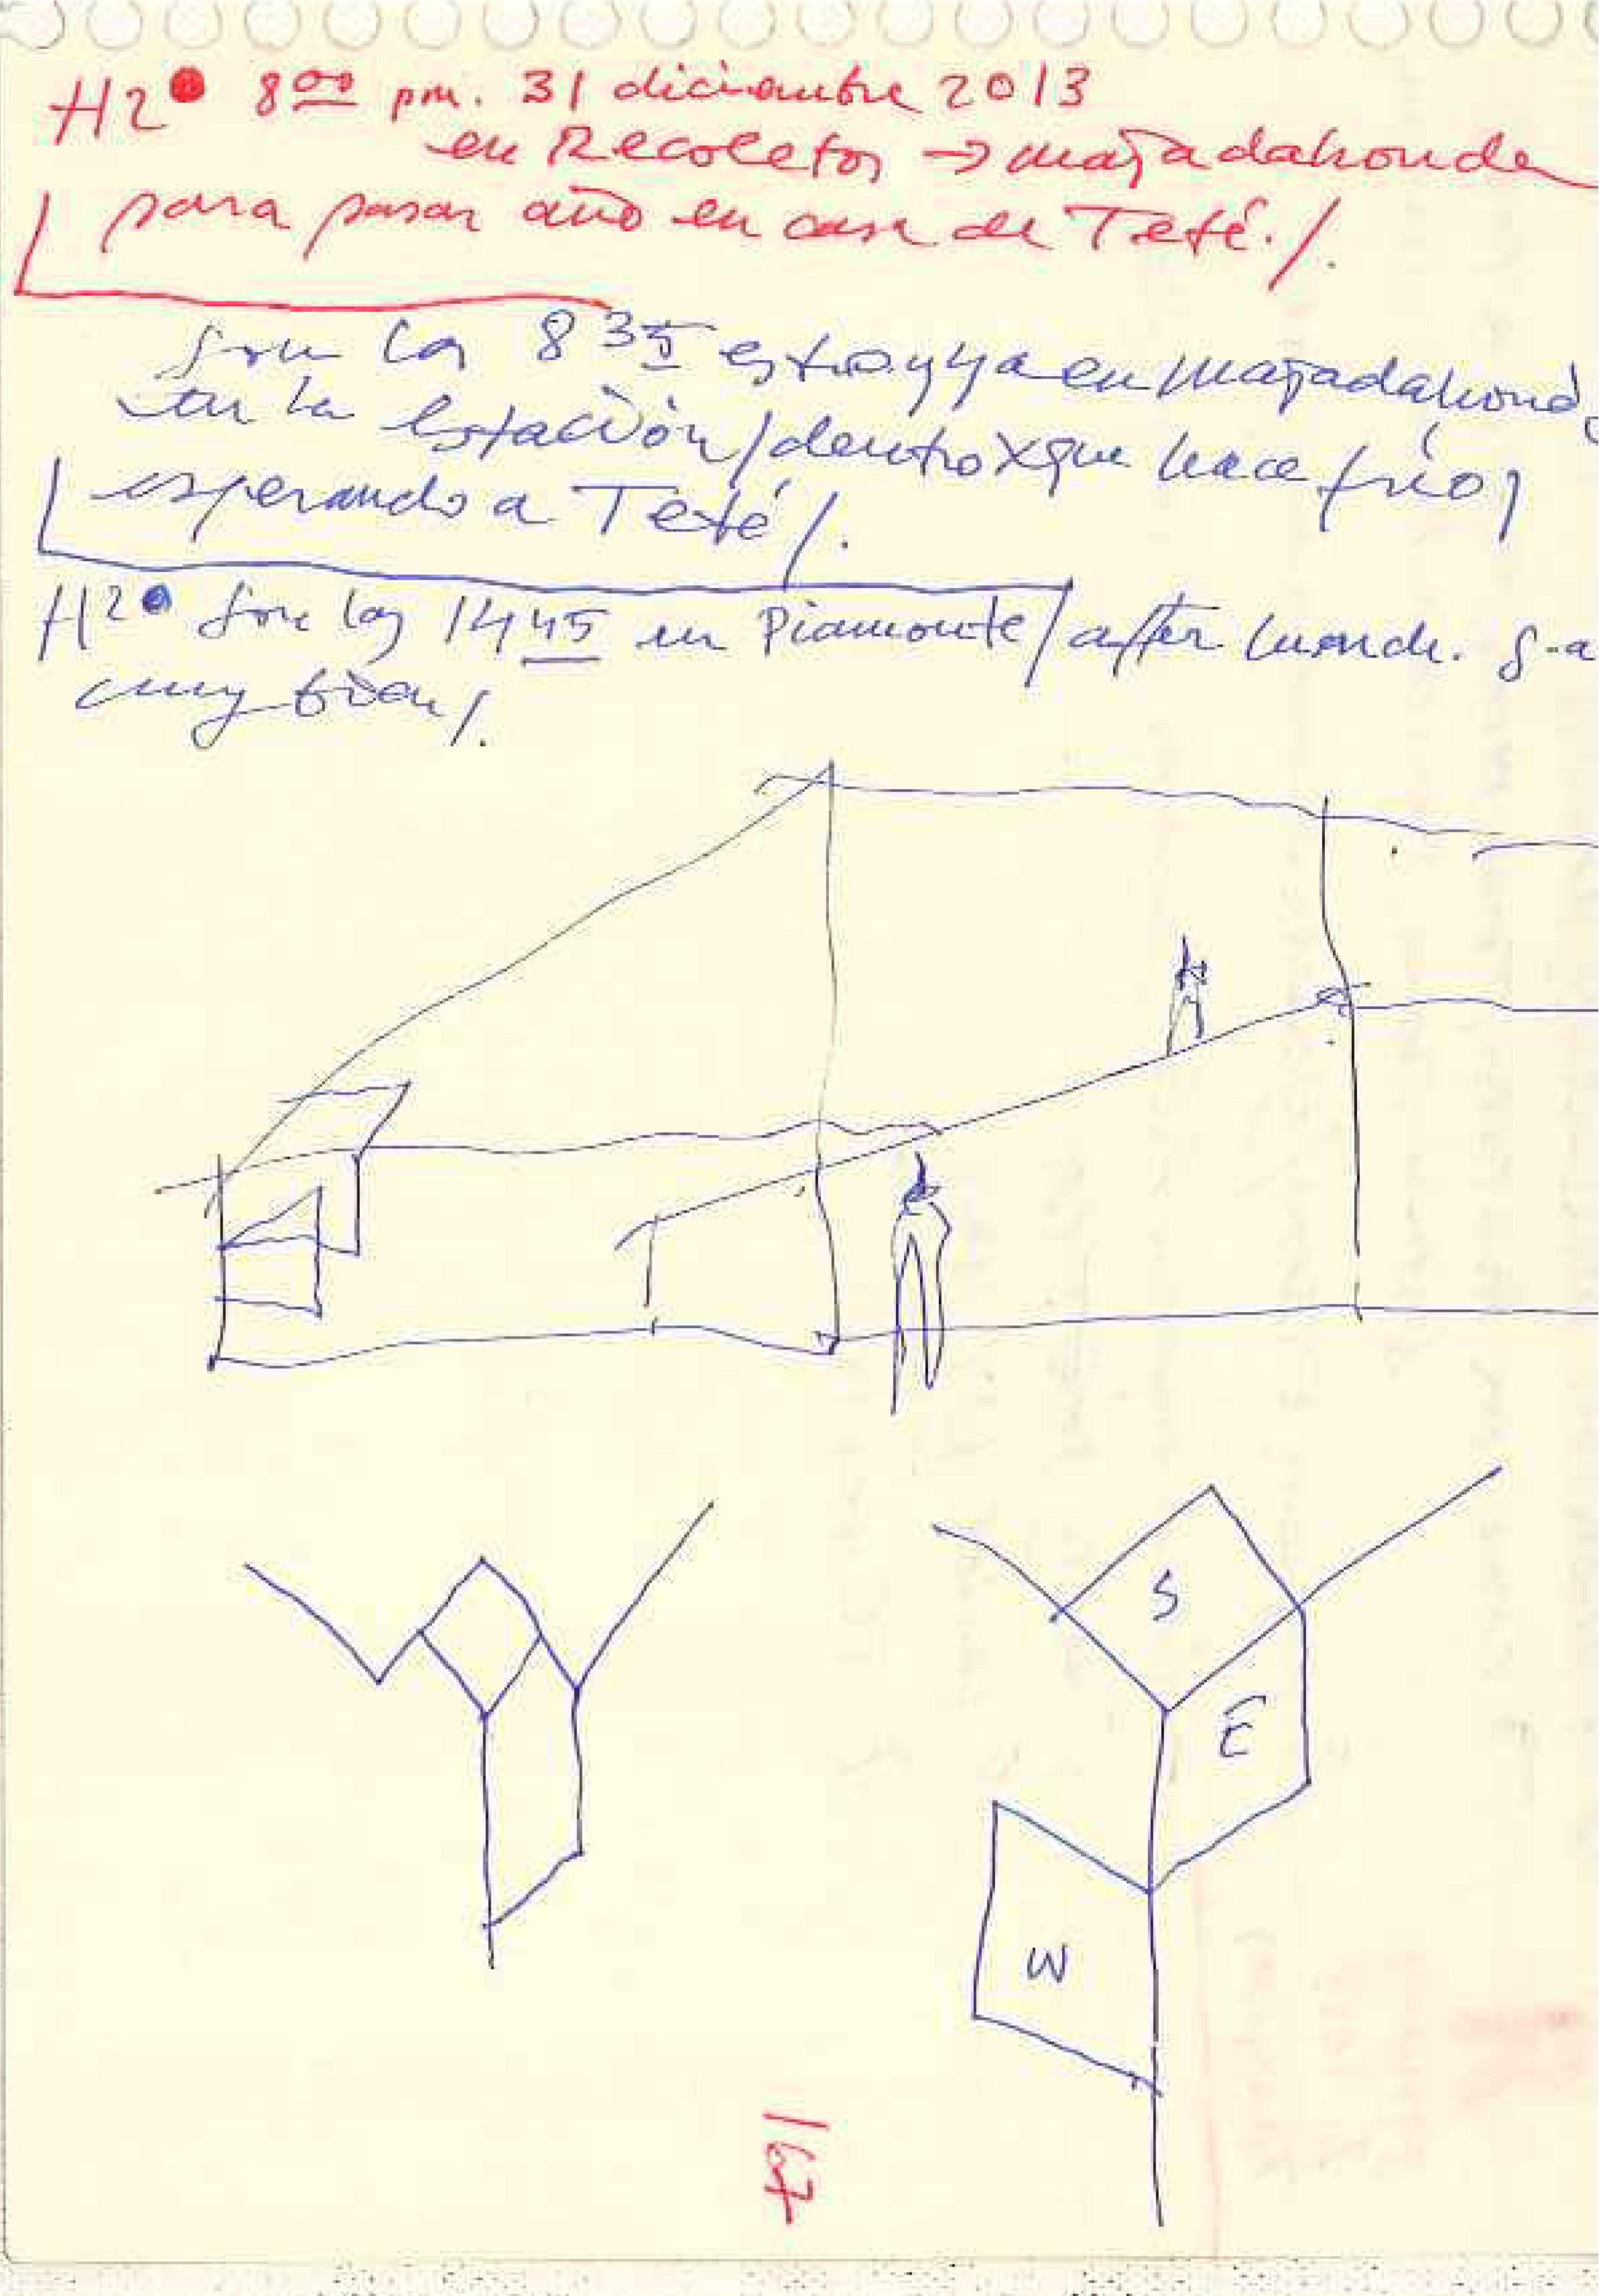 H2● 8 00 pm. 31 diciembre 2013
en Recoletos → majadahonda
para pasar año en casa de Teté./.
Son las 8 35 estoy ya en majadahonda
en la estación/dentro xque hace frío/
esperando a Teté/.
H2● Son las 14 45 en Piamonte/after lunch.
muy bien/.
S
E
W
167